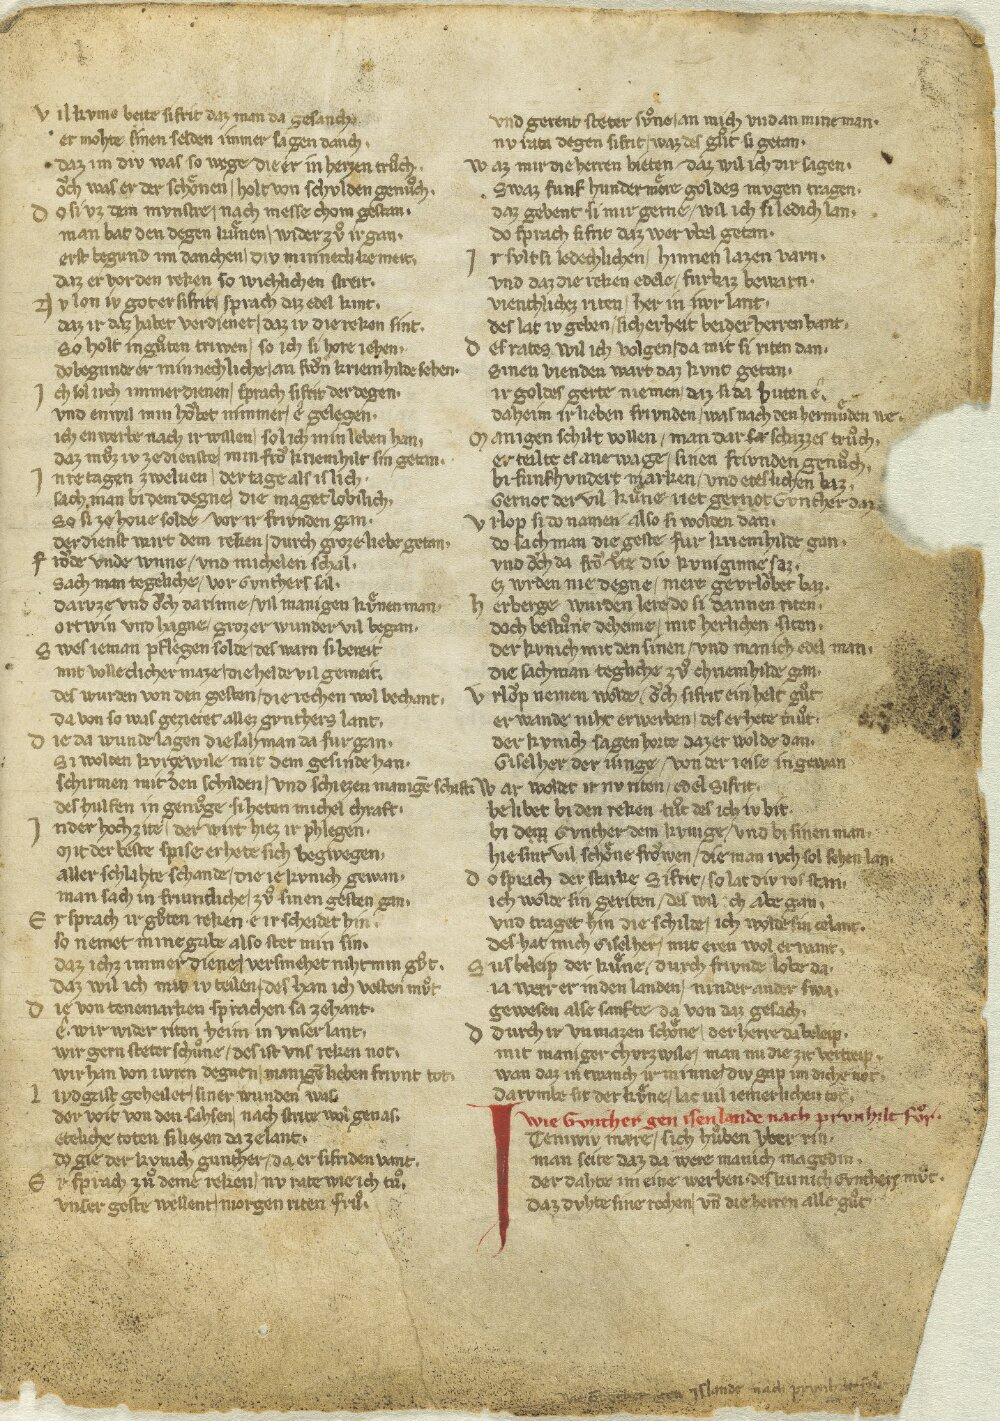 V il kvme beite sifrit daz man da gesanch.
er mohte sinen selden immer sagen danch.
daz im div was so wege die er in herzen trůch.
ǒch was er der schǒnen/ holt von schvlden genůch.
D o si vz dem mvnstre/ nach messe chom gestan.
man bat den degen kůnen/ wider zů ir gan.
erst begund im danchen/ div minnecliche meit.
daz er vor den reken so wichlichen streit.
N v lon iv got er sifrit/ sprach daz edel kint.
daz ir daz habet verdienet/ daz iv die reken sint.
So holt in gůten triwen/ so ich si hore iehen.
do begunde er minnechliche/ an frǒn kriemhilde sehen.
I ch sol iich immer dienen/ sprach sifrit der degen.
vnd en wil min hǒbet nimmer/ e gelegen.
ich en werbe nach ir willen/ sol ich min leben han.
daz mvz iv ze dienste/ min frǒ kriemhilt sin getan.
I nre tagen zwelven/ der tage als islich.
sach man bi dem degne/ die maget lobilich.
So si ze hove solde/ vor ir frivnden gan.
der dienst wart dem reken/ durch groze liebe getan.
F rǒde vnde wnne/ vnd michelen schal.
Sach man tegeliche/ vor Gvnthers sal.
darvze vnd ǒch darinne/ vil manigen kůnen man.
ortwin vnd hagne/ grozer wunder vil began.
S wes ieman pflegen solde/ des warn si bereit
mit volleclicher maze/ die helde vil gemeit.
des wurden von den gesten/ die rechen wol bechant.
da von so was gezieret allez gvnthers lant.
D ie da wunde lagen die sah man da fur gan.
Si wolden kvrzewile mit dem gesinde han.
schirmen mit den schilden/ vnd schiezen manigē schaft.
des hulfen in genůge si heten michel chraft.
I n der hochzite/ der wirt hiez ir phlegen.
Mit der beste spise er hete sich begwegen.
aller schlahte schande/ die ie kvnich gewan.
man sach in frivntliche/ zů sinen gesten gan.
E r sprach ir gůten reken. e ir scheidet hin.
so nemet mine gabe also stet min sin.
daz ichz immer diene/ versmehet niht min gůt.
daz wil ich mit iv teilen/ des han ich vesten můt
D ie von tenemarken sprachen sa zehant.
e. wir wider riten heim in vnser lant.
wir gern steter schůne/ des ist vns reken not.
wir han von iwren degnen manigē lieben frivnt tot.
L ivdgast geheilet/ siner wunden was
der voit von den sahsen/ nach strite wol genas.
eteliche toten si liezen da ze lant.
do gie der kvnich gunther/ da er sifriden vant.
E r sprach zů deme reken/ nv rate wie ich tů.
vnser geste wellent/ morgen riten frů.
vnd gerent steter sůne/ an mich vnd an mine man.
nv rata degen sifrit/ waz des gůt si getan.
W az mir die herren bieten/ daz wil ich dir sagen.
Swaz funf hunder mǒre goldes mvgen tragen.
daz gebent si mir gerne/ wil ich si ledich lan.
do sprach sifrit daz wer vbel getan.
I r svlt si ledechlichen/ hinnen lazen varn.
vnd daz die reken edele/ furbaz bewarn.
vientlichez riten/ her in iwr lant.
des lat iv geben/ sicherheit beider herren hant.
D es rates wil ich volgen/ da mit si riten dan.
Sinen vienden wart daz kvnt getan.
ir goldes gerte niemen/ daz si da buten e.
daheim ir lieben frivnden/ was nach den hermůden we.
M anigen schilt vollen/ man dar sa schazzes trůch.
er teilte es ane wage/ sinen frivnden genůch.
bi funfhvndert marken/ vnd etslichen baz.
Gernot der vil kůne riet gernot Gvnther daz
V rlop si do namen also si wolden dan.
do sach man die geste fur kriemhilde gan.
vnd ǒch da frǒ ůte div kvniginne saz.
ez wrden nie degne/ mere gevrlǒbet baz.
H erberge wurden lere do si dannen riten.
doch bestůnt deheime/ mit herlichen siten.
der kvnich mit den sinen/ vnd manich edel man.
die sach man tegliche zů chriemhilde gan.
V rlǒp nemen wolde/ ǒch sifrit ein helt gůt
er wande niht erwerben/ des er hete můt.
der kvnich sagen horte daz er wolde dan.
Giselher der iunge/ von der reise in gewan
W ar woldet ir nv riten/ edel Sifrit.
belibet bi den reken tůt des ich iv bit.
bi dem Gvnther dem kvnige/ vnd bi sinen man.
hie sint vil schǒne frǒwen/ die man ivch sol sehen lan.
D o sprach der starke Sifrit/ so lat div ros stan.
ich wolde sin geriten/ des wil ich abe gan.
vnd traget hin die schilde/ ich wolde sin celant.
des hat mich Giselher/ mit eren wol erwant.
S us beleip der kůne/ durch frivnde lobe da.
ia wer er in den landen/ ninder ander swa.
gewesen alse sanfte da von daz gesach.
D durch ir vnmazen schǒne/ der herre da beleip.
mit maniger chvrzwile/ man nu die zit vertreip.
wan daz in twanch ir minne/ div gap im diche not.
darvmbe sit der kůne/ lac uil iemerlichen tot.
wie Gvnther gen isenlande nach prvnhilt fůr.
I Teniwiv mare/ sich hůben vber rin.
man seite daz da were manich magedin.
der dahte im eine werben/ des kunich Gvnthers můt.
daz dvhte sine rechen/ vn̄ die herren alle gůt
islande nach prvnhilt